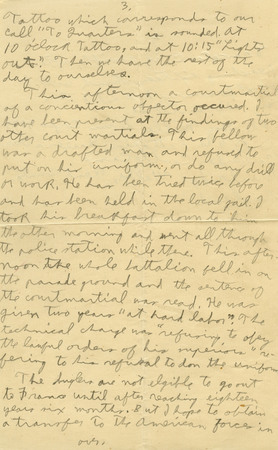 3.
Tattoo which corresponds to our
call "To Quarters" is sounded. At
10 o'clock Tattoo, and at 10:15 "Lights
Outs." Then we have the rest of the
day to ourselves.
This afternoon a courtmartial
of a concientious objector occured. I
have been present at the findings of two
other court martials. This fellow
was a drafted man and refused to
put on his uniform, or do any drill
or work. He has been tried twice before
and has been held in the local jail. I
took his breakfast down to him
the other morning and went all through
the police station while there. This after-
noon the whole battalion fell in on
the parade ground and the sentence of
the courtmartial was read. He was
given two years "at hard labor". The
technical charge was "refusing to obey
the lawful orders of his superiors" re-
fering to his refusal to don the uniform
The are not eligible to go out
to France until after reaching eighteen
years six months. But I hope to obtain
a transfer to the American forces in
over.